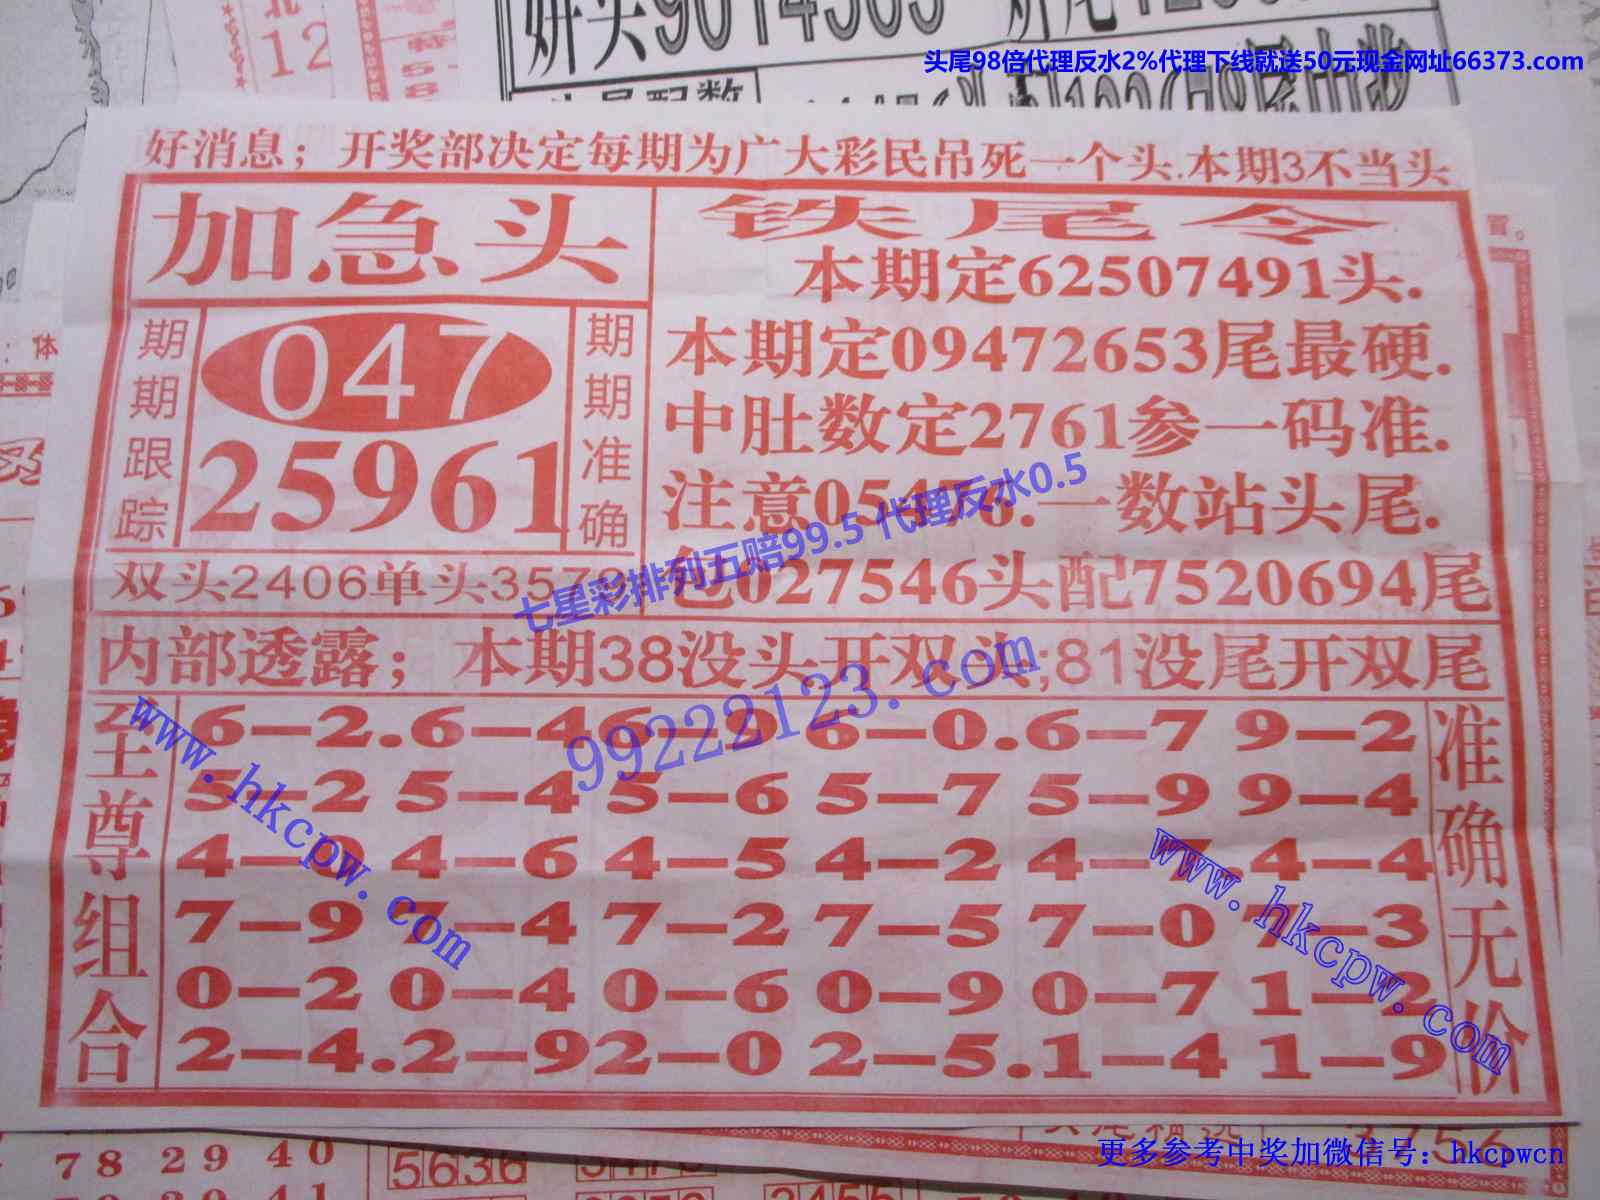 头尾98倍代理反水2%代理下线就送50元现金网址66373.com
好消息；开奖部决定每期为广大彩民吊死一个头.本期3不当头
加急头
期期跟踪
047
25961
期期准确
双头2406单头3579
铁尾令
本期定62507491头.
本期定09472653尾最硬.
中肚数定2761参一码准.
注意05476.一数站头尾.
包027546头配7520694尾
七星彩排列五赔99.5 代理反水0.5
内部透露；本期38没头开双头;81没尾开双尾
99222123.com
至尊组合
6-2.6-46-9 6-0.6-7 9-2
5-2 5-4 5-6 5-7 5-9 9-4
4-0 4-6 4-5 4-2 4-7.4-4
7-9 7-4 7-2 7-5 7-0 7-3
0-2 0-4 0-6 0-9 0-7 1-2
2-4.2-92-0 2-5.1-4 1-9
准确无价
www.hkcpw.com
www.hkcpw.com
78 29 40
5636
更多参考中奖加微信号：hkcpwcn